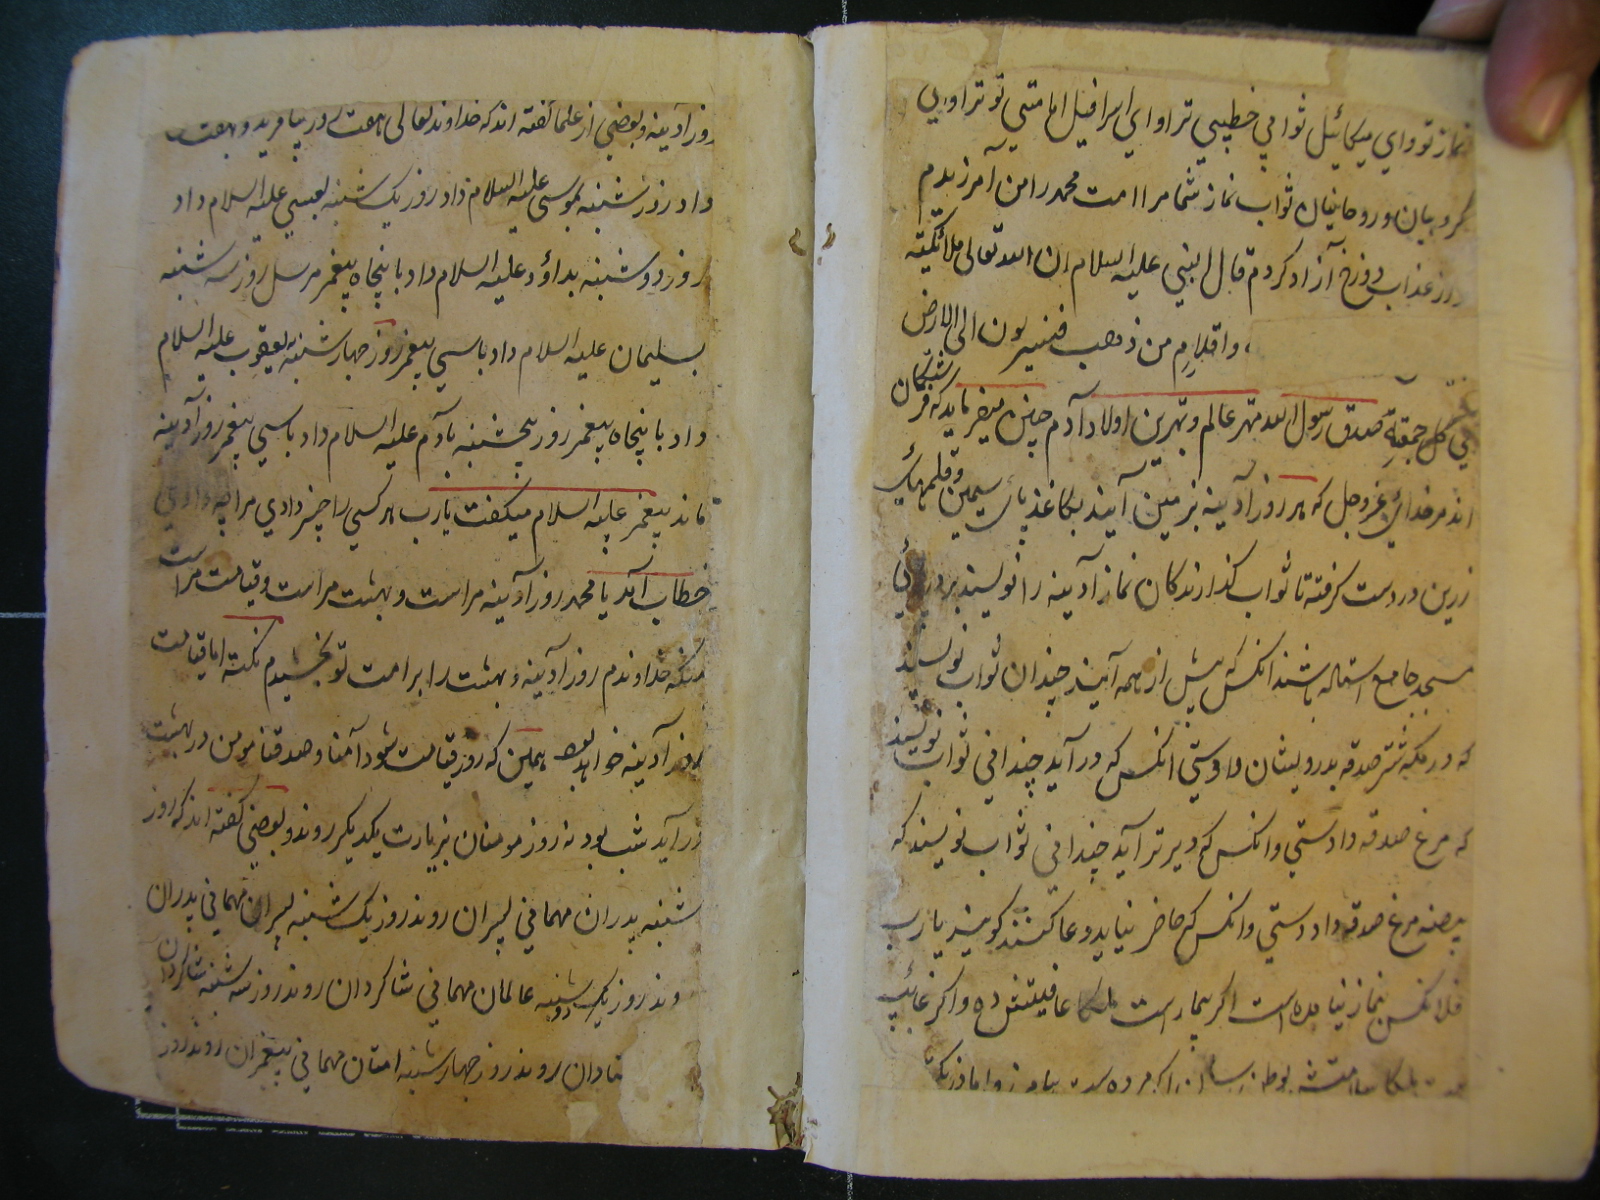 نماز تو و ای میکائیل ثوابی خطیبی ترا و ای اسرافیل امامتی تو ترا و ای
کروبیان و روحانیان ثواب نماز شما مر امت محمد را من آمرزیدم
و از عذاب دوزخ آزاد کردم قال النبی علیه السلام ان الله تعالی ملائکته
و اقلام من ذهب فیسیرون الی الارض
فی کل جمعة صدق رسول الله مهتر عالم و بهترین اولاد آدم چنین میفرماید که فرشتگان
اند مر خدائی عزوجل که هر روز آدینه بزمین آیند بکاغذ پائی سیمین و قلمهائی
زرین در دست کرفته تا ثواب کذارندکان نماز آدینه را نویسند بر در پائی
مسجد جامع استاده باشند انکس که پیش از همه آیند چندان ثواب نویسند
که در مکه شتر صدقه بدرویشان دادستی انکس که در آید چندانی ثواب نویسند
که مرغ صدقه دادستی وانکس که دیرتر آید چندانی ثواب نویسند که
بیضه مرغ صدقه داددستی وانکس که حاضر نیاید دعا کنند کویند یارب
فلانکس بنماز نیامده است اکر بیمارست ملکا عافیتش ده واکر غائب
ملکا سلامتش بوطن رسان اکر مرده ست بیامرز و اما در نکته
روز آدینه و بعضی از علما کفته اند که خداوند تعالی هفت در بیافرید و هفت
داد روز شنبه بموسی علیه السلام داد روز یک شنبه بعیسی علیه السلام داد
روز دوشنبه بداؤد علیه السلام داد با پنجاه پیغمبر مرسل روز سه شنبه
بسلیمان علیه السلام داد باسی پیغمبر روز چهارشنبه بیعقوب علیه السلام
داد با پنجاه پیغمبر روز پنجشنبه بآدم علیه السلام داد باسی پیغمبر روز آدینه
ماند پیغمبر علیه السلام میکفت یارب هر کسی را چیز دادی مرا چه دادی
خطاب آمد یا محمد روز آدینه مراست و بهشت مراست و قیامت مراست
منکه خداوندم روز آدینه و بهشت را بر امت تو بخشیدم نکته اما قیامت
روز آدینه خواهد بود همین که روز قیامت شود آمنا و صدقنا مومن در بهشت
درآید شب بود نه روز مومنان بزیارت یکدیکر روند و بعضی کفته اند که روز
شنبه پدران مهمانی پسران روند روز یک شنبه پسران مهمانی پدران
روند روز دوشنبه عالمان مهمانی شاکردان روند روز سه شنبه شاکردان
تادان روند روز چهارشنبه امتان مهمانی پیغمبران روند روز